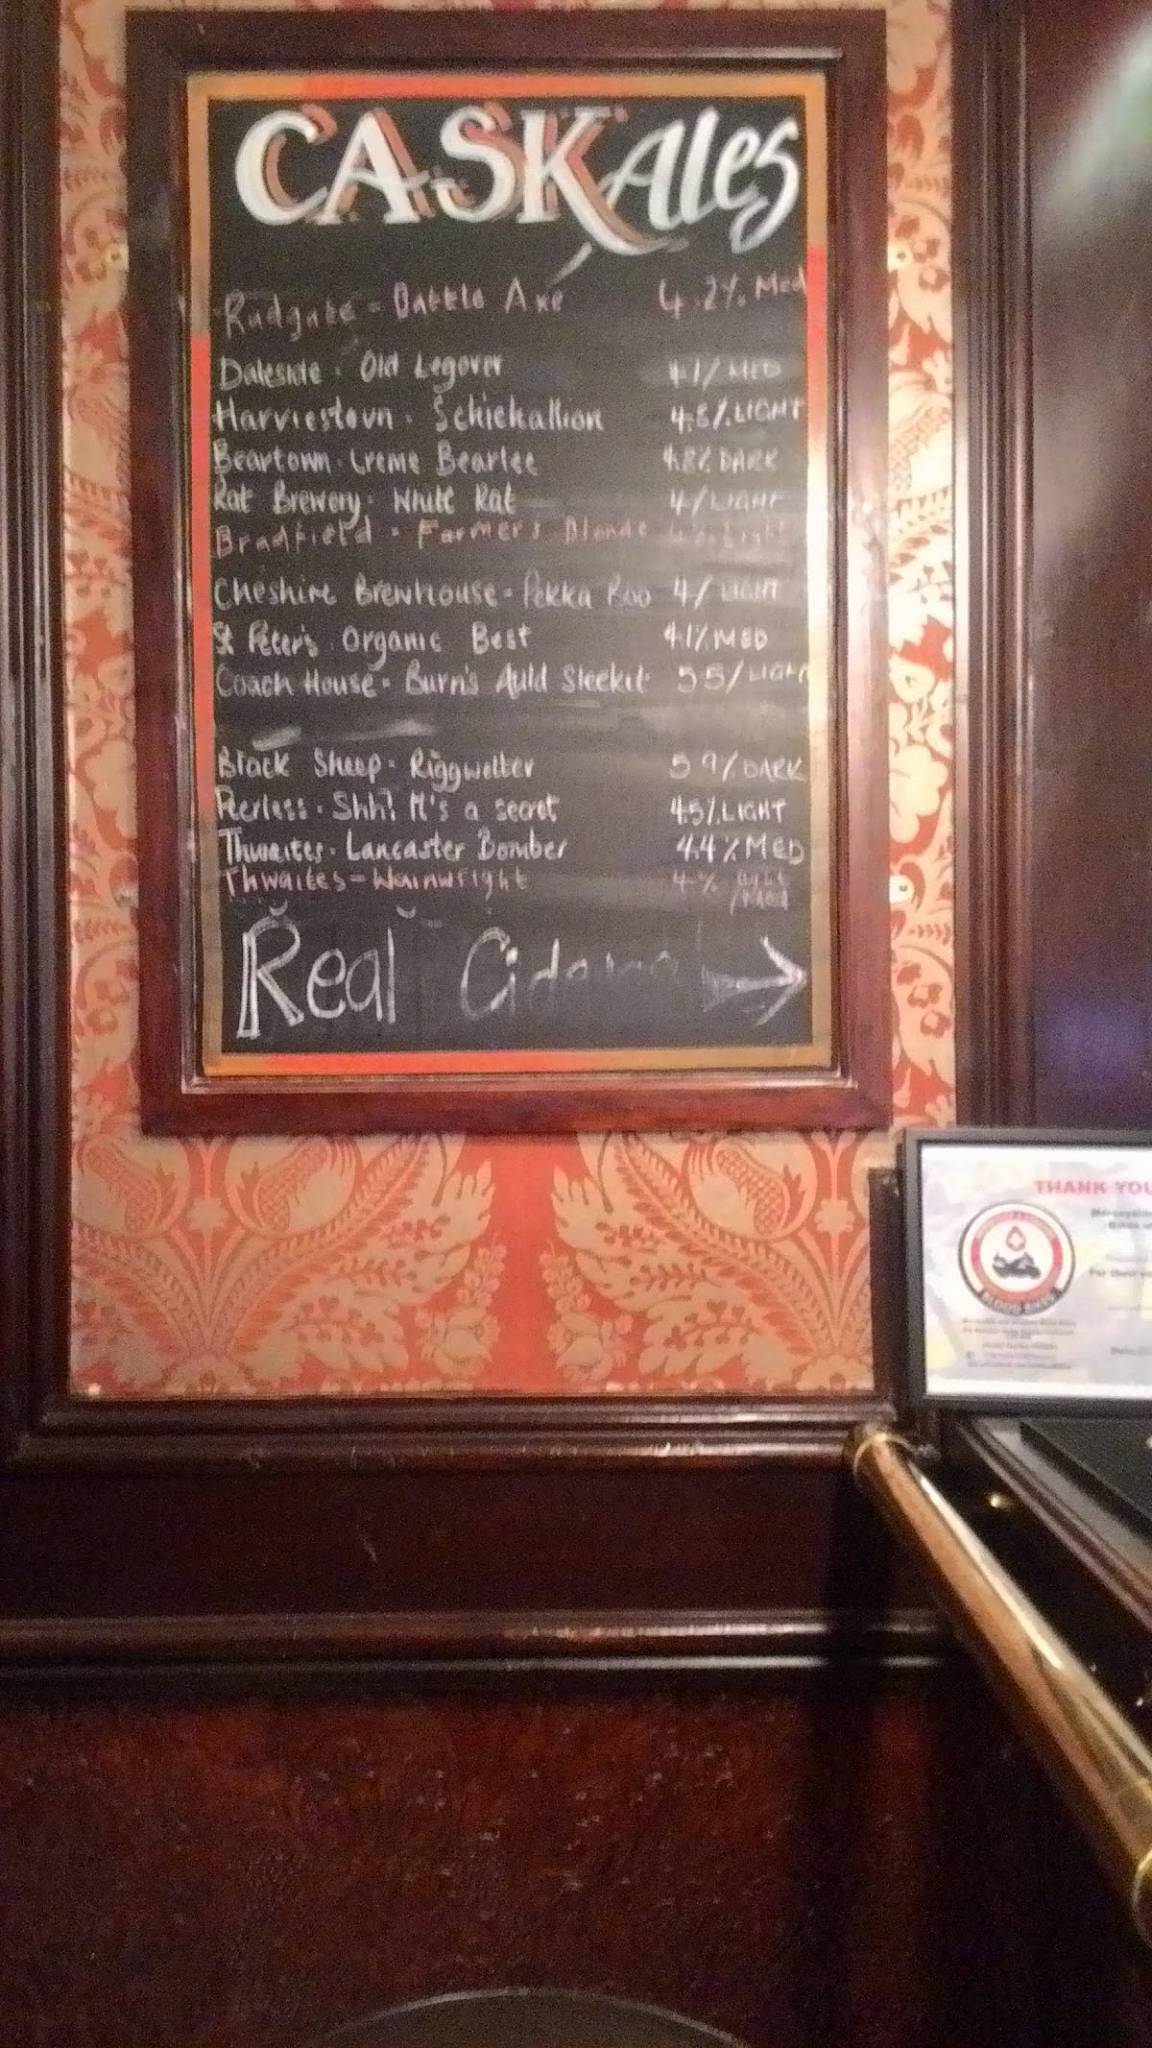 CASK Ales
Rudgate = Battle Axe 4.2% Med
Daleside - Old Legover 4.1/ MED
Harviestoun - Schiehallion 4.8% LIGHT
Beartown - Creme Bearlee 4.8% DARK
Rat Brewery - White Rat 4/ LIGHT
Bradfield = Farmers Blonde Light
Cheshire Brewhouse = Pekka Boo 4/ LIGHT
St Peter's Organic Best 4.1% MED
Coach House = Burn's Auld Sleekit 5 5/ LIGHT
Black Sheep = Riggwelter 5 9/ DARK
Peerless - Shh! It's a secret 4.5% LIGHT
Thwaites - Lancaster Bomber 4.4% MED
Thwaites = Wainwright 4% light
/Med
Real
THANK YOU
BLOOD BIKES